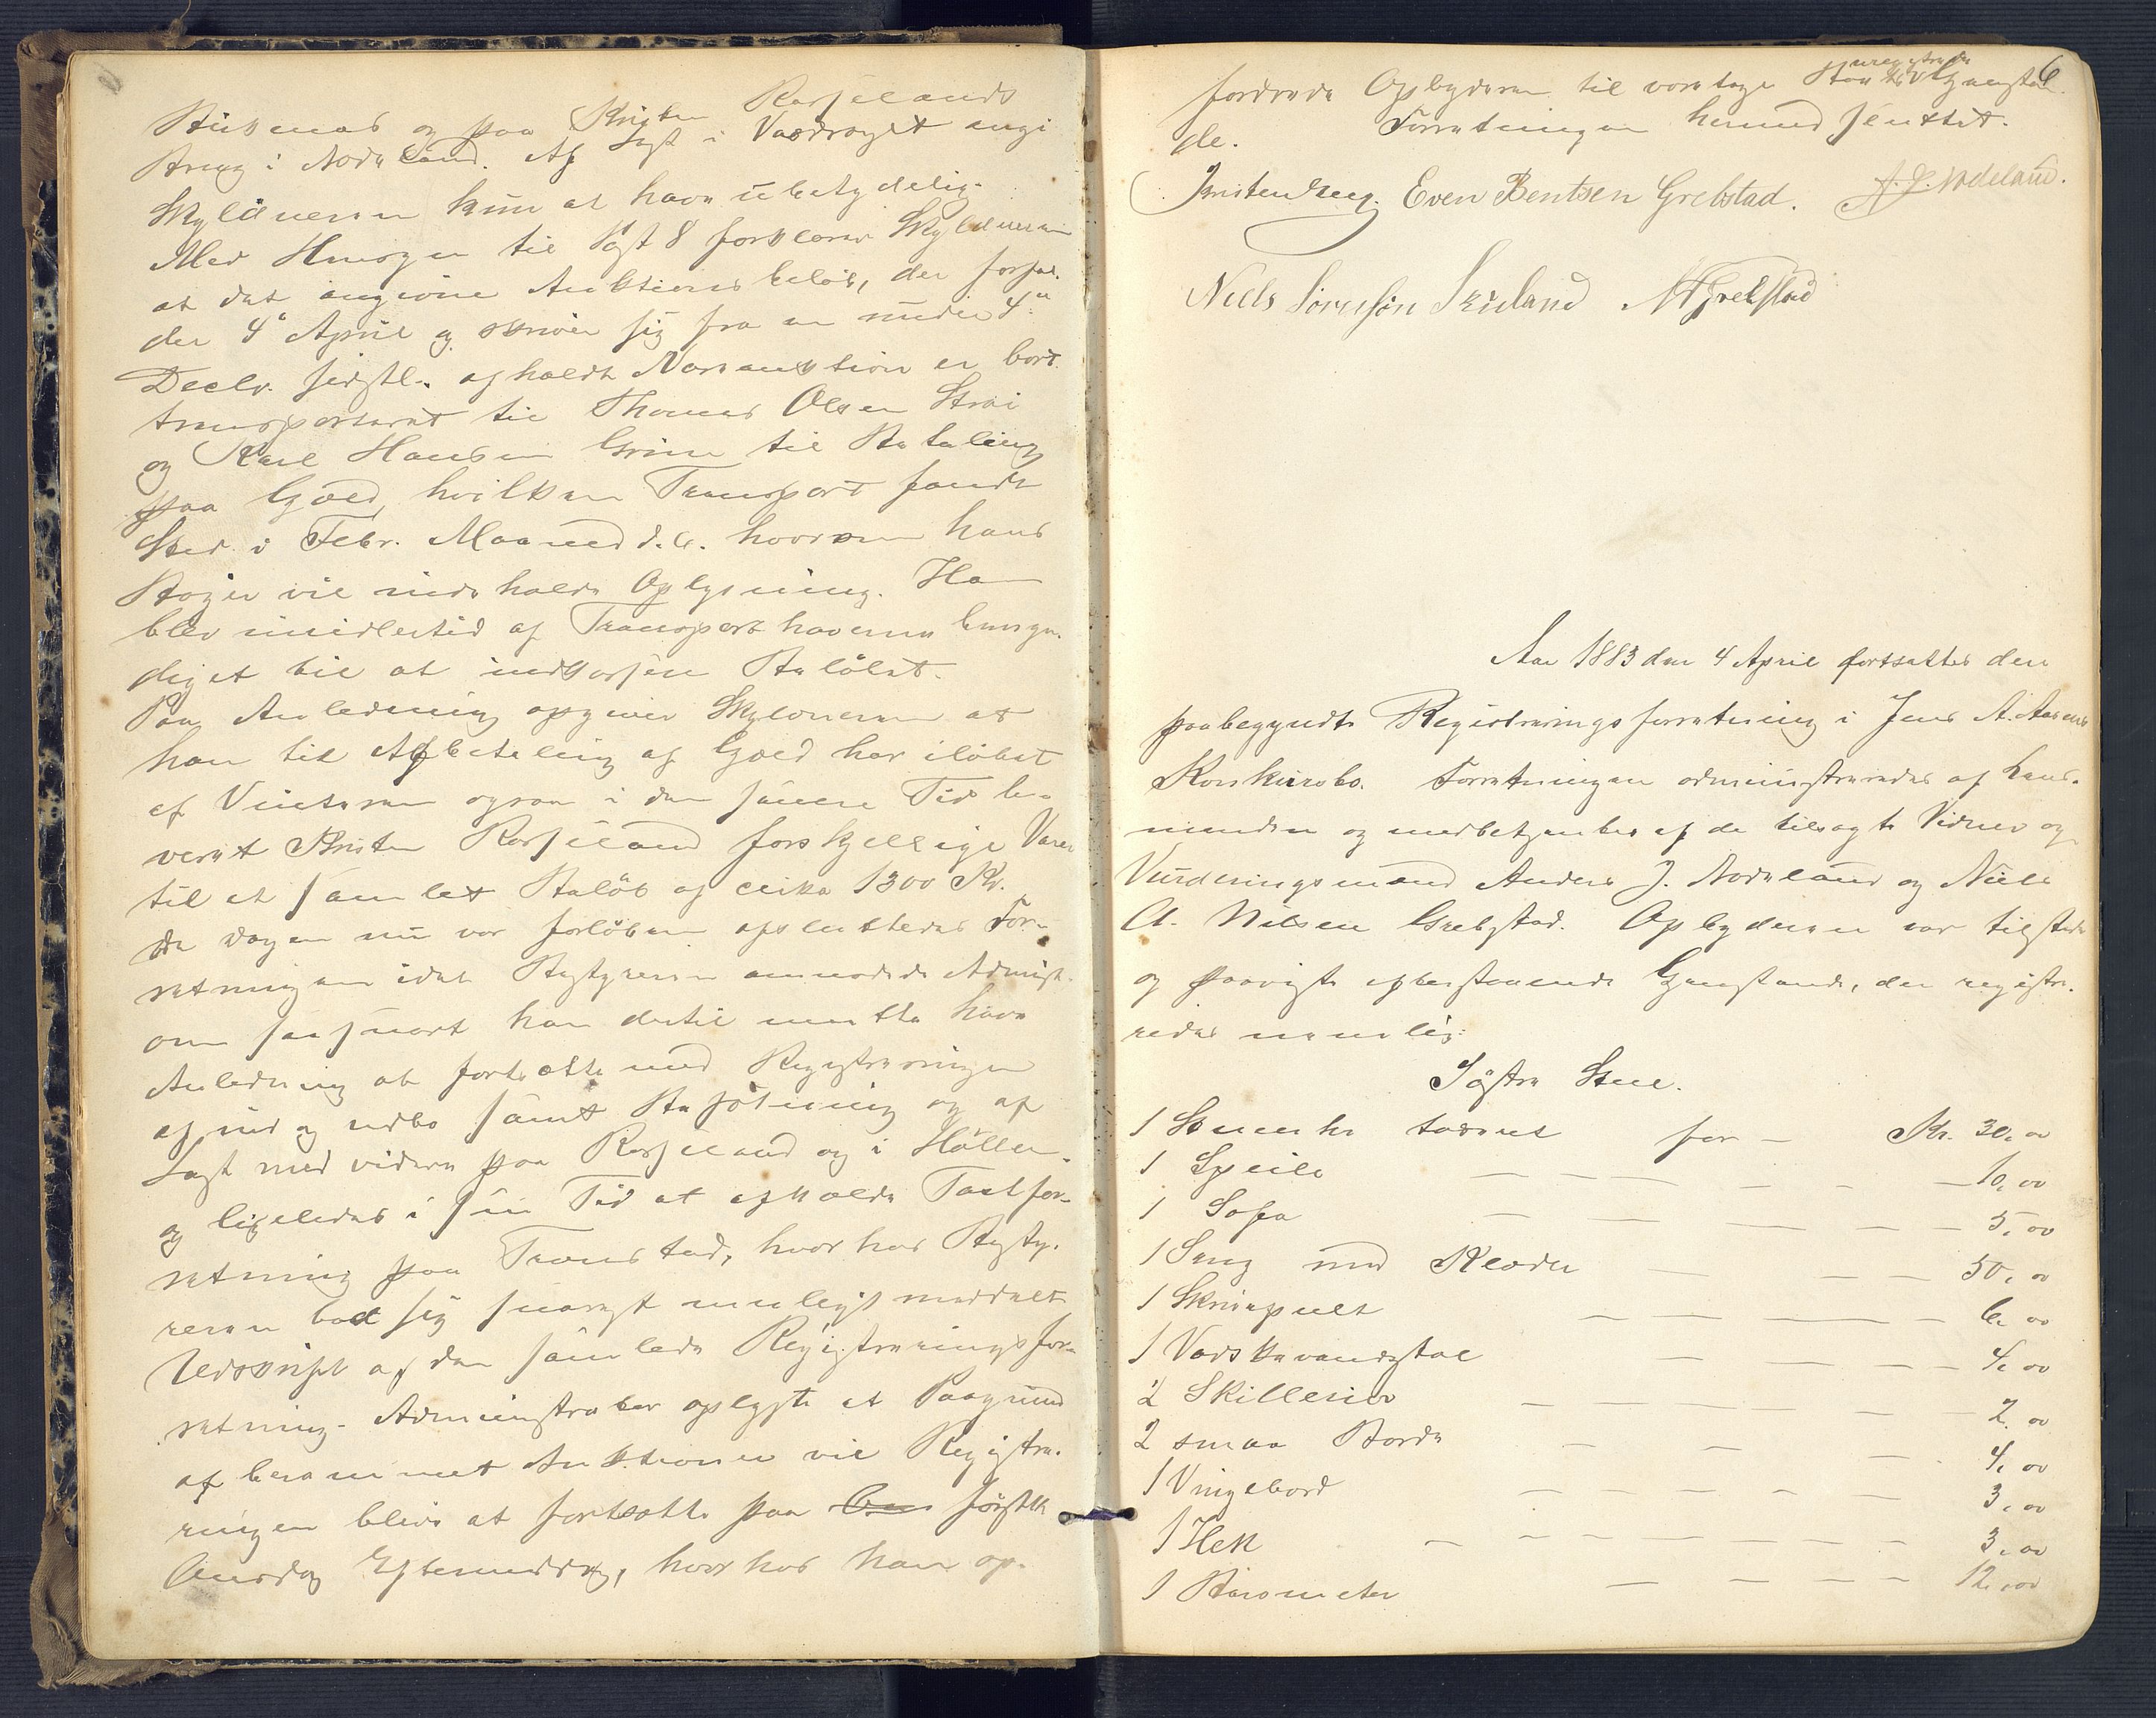 Buksnes og paa Kristen Rosselands
Brug i Nodeland. Af Løst i Vaudraget angi
Skyldneren kun at have ubetydelig.
Med Hensyn til Post 8 forklarer Skyldneren
at det angivne Auktionsbeløb, der forfal.
der 4de April og skriver sig fra en under 4de
Decbr. sidstl. afholdt Vareauktion er bort
transporteret til Thomas Olsen Strai
og Karl Hansen Grim til Betaling
paa Gjæld, hvilken Transport fandt
Sted i Febr. Maaned d.A. hvorom hans
Bøger vil indeholde Oplysning. Han
blev imidlertid af Transporthaverne bemyn
diget til at indkassere Beløbet.
Paa Anledning opgiver Skyldneren at
han til Afbetaling af Gjæld har iløbet
af Vinteren ogsaa i den senere Tid le-
veret Kristen Rosseland forskjellige Varer
til et samlet Beløb af cirka 1300 Kr.
Da Dagen nu var forløben afsluttedes For-
retningen idet Bestyreren anmodede Administ.
om saasnart han dertil maatte have
Anledning at fortsætte med Registreringen
af ind og udbo samt Besætning og af
Løst med videre paa Rosseland og i Høllen.
og ligeledes i sin Tid at afholde Taxtfor-
retning paa Tronstad, hvorhos Besty.
reren bad sig snarest muligst meddelt
Udskrift af den samlede Registreringsfor-
retning. Administrator oplyste at Paagrund
af berammet Auktioner vil Registre.
ringen blive at fortsætte paa førstk
Onsdag Eftermiddag, hvorhos han op-
6
uregistrerede
fordrede Opbyderen til varetage Gjenstan.
de. Forretningen hermed sluttet.
Even Bentsen Grebstad. A. J. Nodeland.
Niels Sørensøn Skuland N Grebstad
Aar 1883 den 4 April fortsattes den
paabegyndte Registreringsforretning i Jens A. Aasens
Konkursbo. Forretningen administreredes af Lens-
manden og medbetjentes af de tilsagte Vidner og
Vurderingsmænd Anders J. Nodeland og Niels
A. Nilsen Grebstad. Opbyderen var tilstede
og paaviste efterstaaende Gjenstande, der registre.
redes nemlig:
Søstre Stue.
1 Stueuhr taxeret for - Kr. 30,00
1 Speile 10,00
1 Sofa 5,00
1 Seng med Klæder 50,00
1 Skrivepult 6,00
1 Vadskevandstol 4,00
2 Skillerier 2,00
2 smaa Borde 4,00
1 Vingebord 3,00
1 Hek 3,00
1 Barometer 12,00